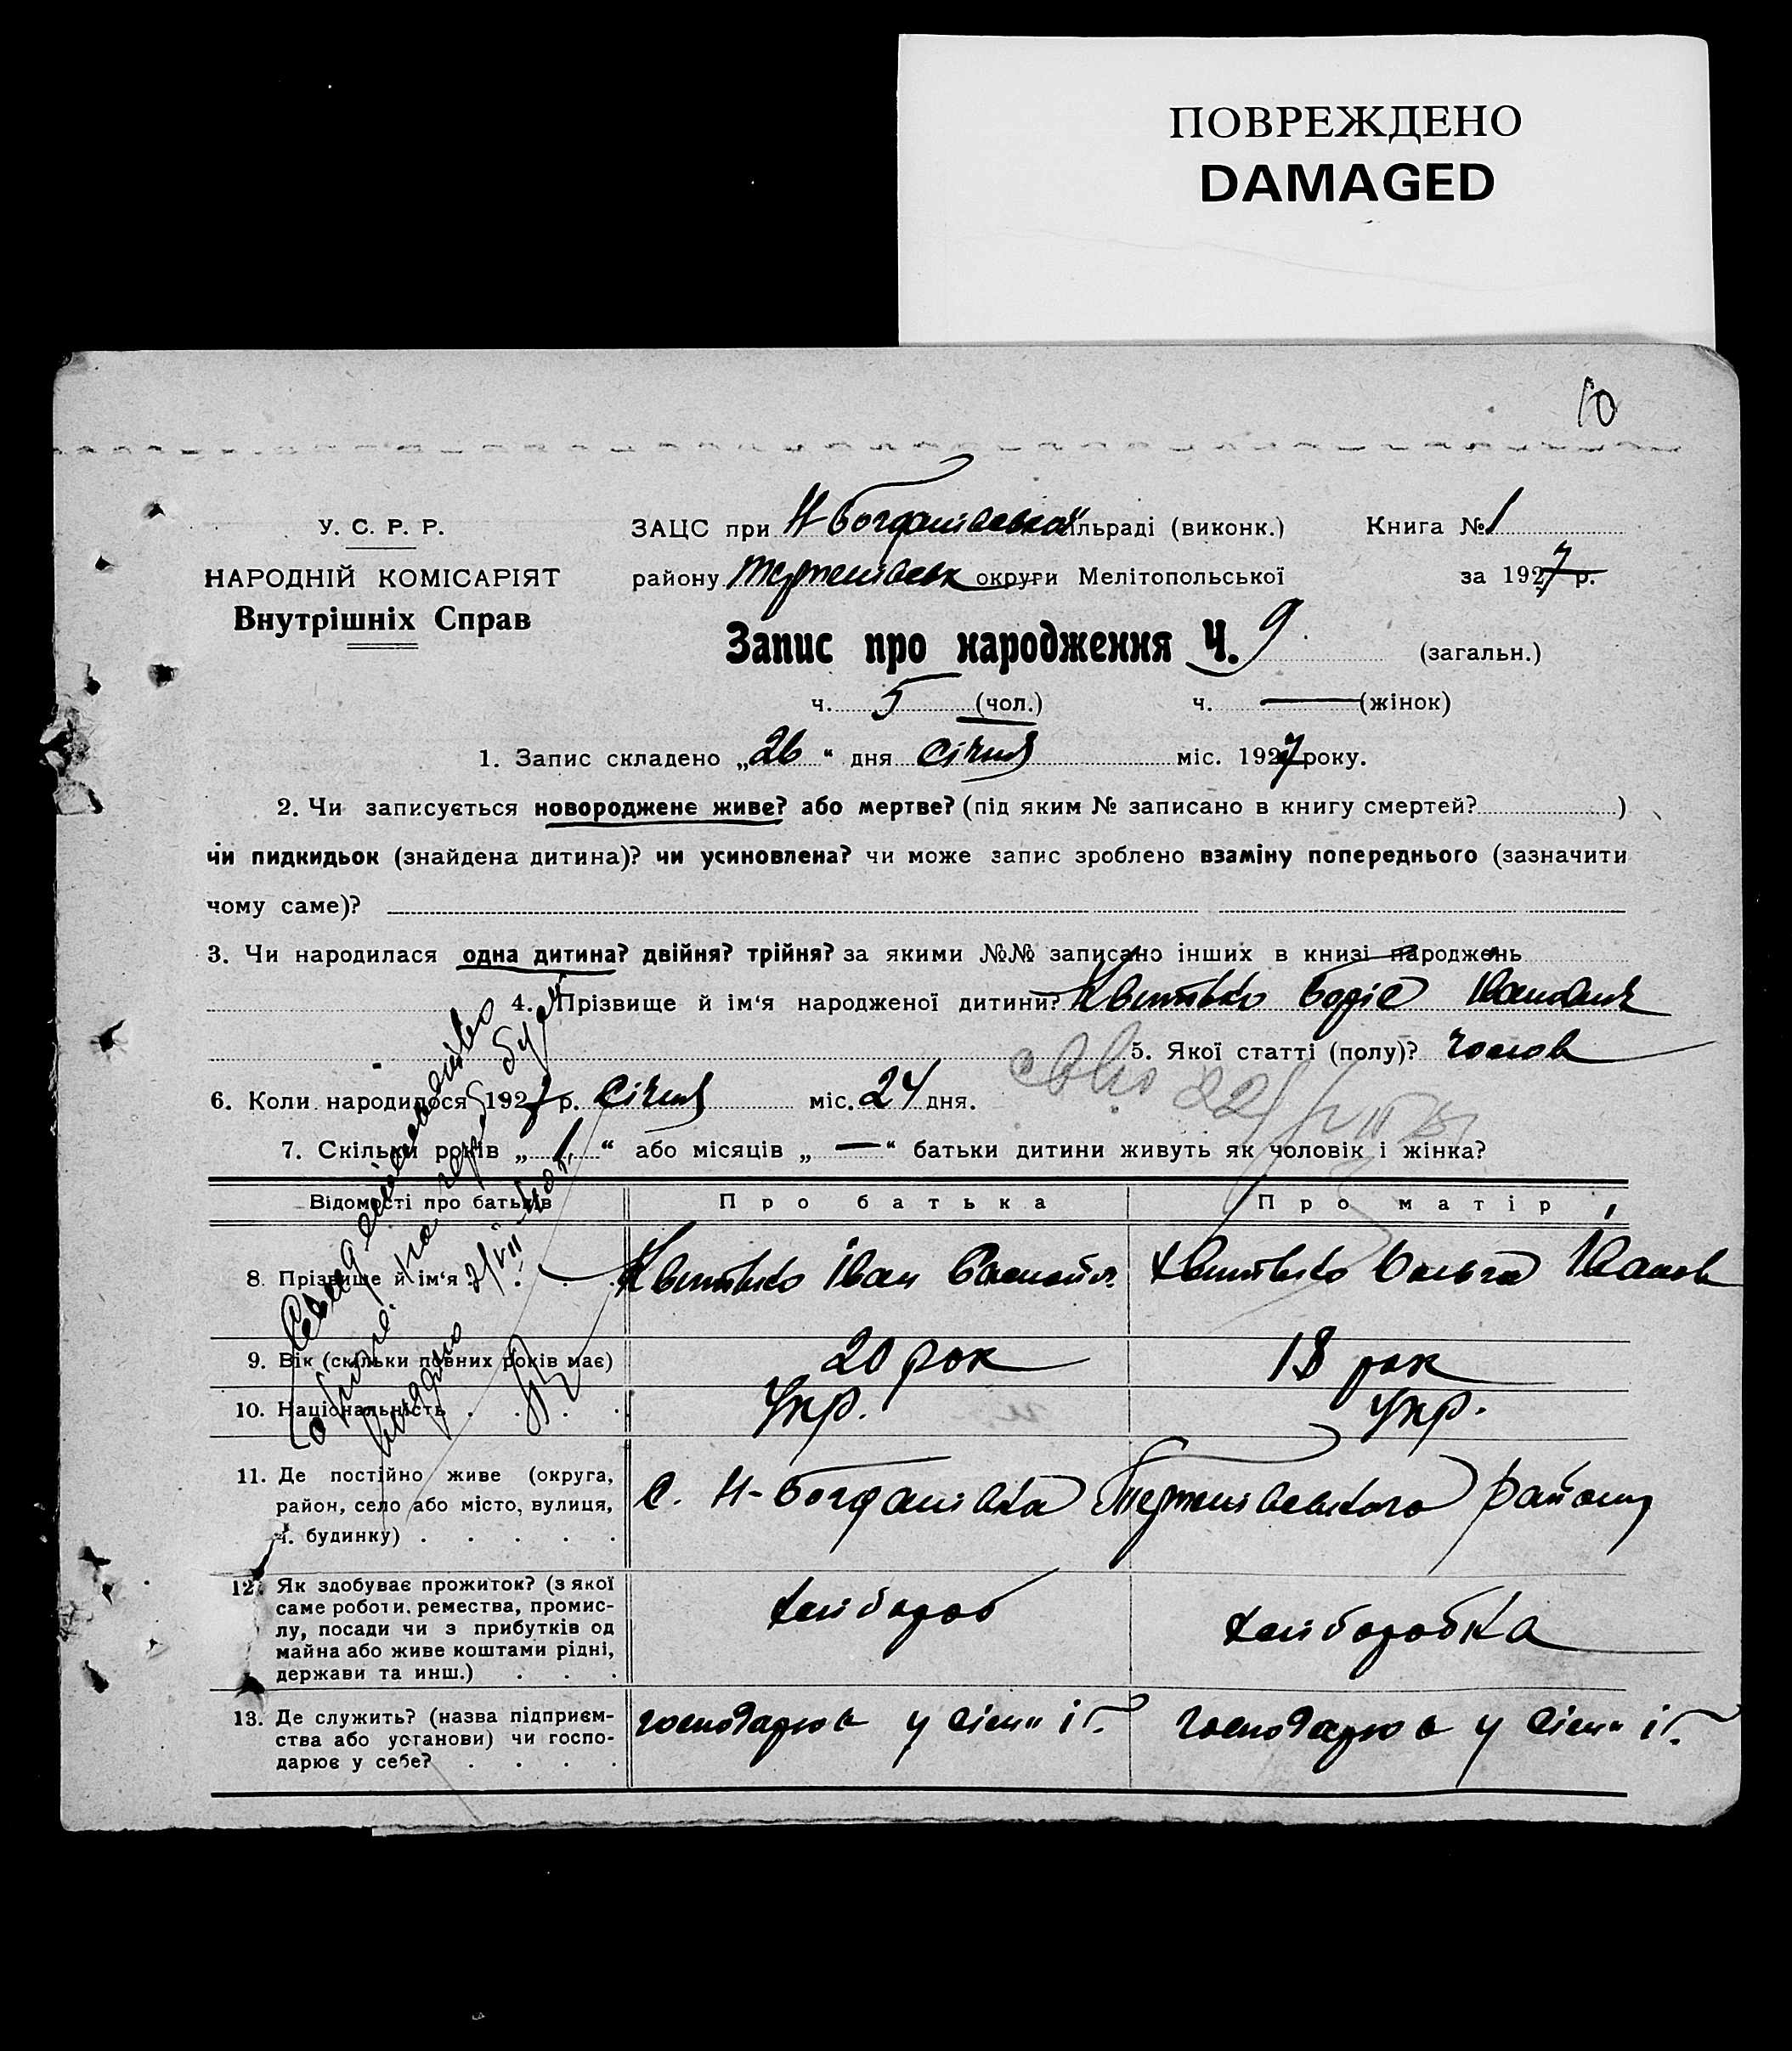 ПОВРЕЖДЕНО
DAMAGED
10
У. С. Р. Р.
НАРОДНІЙ КОМІСАРІЯТ
Внутрішніх Справ
ЗАЦС при Н-Богданівській сільраді (виконк.)
Книга № 1
району Терпенівськ округи Мелітопольської
за 1927 р.
Запис про народження Ч. 9 (загальн.)
ч. 5 (чол.) ч. — (жінок)
1. Запис складено „26“ дня Січня міс. 1927 року.
2. Чи записується новороджене живе? або мертве? (під яким № записано в книгу смертей? )
чи пидкидьок (знайдена дитина)? чи усиновлена? чи може запис зроблено взаміну попереднього (зазначити
чому саме)?
3. Чи народилася одна дитина? двійня? трійня? за якими №№ записано інших в книзі народжень
4. Прізвище й ім‘я народженої дитини? Квитько Іванович
5. Якої статті (полу)? чолов
6. Коли народилося 1927 р. Січня міс. 24 дня.
7. Скільки років „1“ або місяців „—“ батьки дитини живуть як чоловік і жінка?
Відомості про батьків
Про батька
Про матір
8. Прізвище й ім‘я
Квитько Іван
Квитько Ольга Іванов
9. Вік (скільки повних років має)
20 рок
18 рок
10. Національність
Укр.
Укр.
11. Де постійно живе (округа,
район, село або місто, вулиця,
ч. будинку)
с. Н-Богданівка Терпенівського району
12. Як здобуває прожиток? (з якої
саме роботи, ремества, промис-
лу, посади чи з прибутків од
майна або живе коштами рідні,
держави та инш.)
хлібороб
хліборобка
13. Де служить? (назва підприєм-
ства або установи) чи госпо-
дарює у себе?
господарює у
господарює у